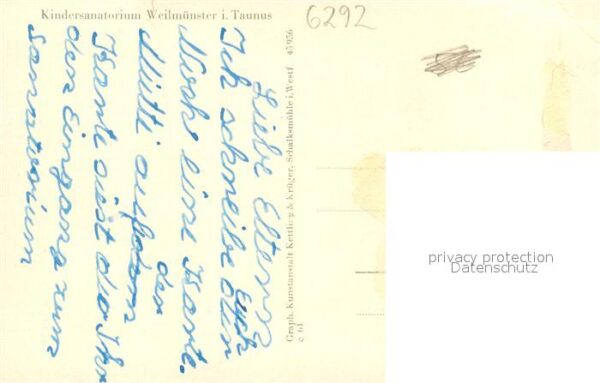 Kindersanatorium Weilmünster i. Taunus
6292
Liebe Eltern
Ich schreibe Euch
Noch eine Karte.
Mutti auf der
Karte siest du Ihr
den Eingang zum
sanatorium
Graph. Kunstanstalt Kettling & Krüger, Schalksmühle i. Westf 45956
c 61
privacy protection
Datenschutz